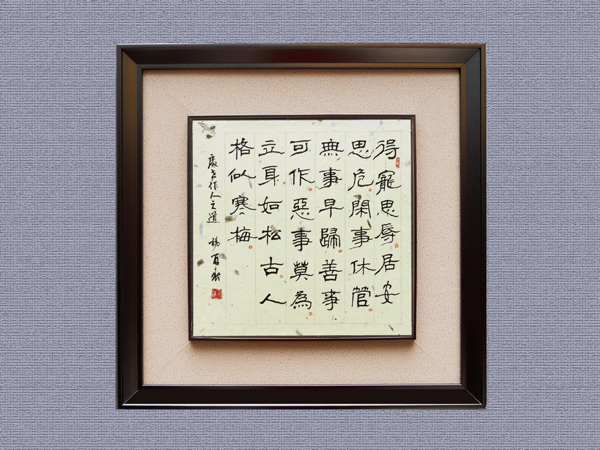 得寵思辱居安
思危閑事休管
無事早歸善事
可作惡事莫為
立身如松古人
格似寒梅
作人之道